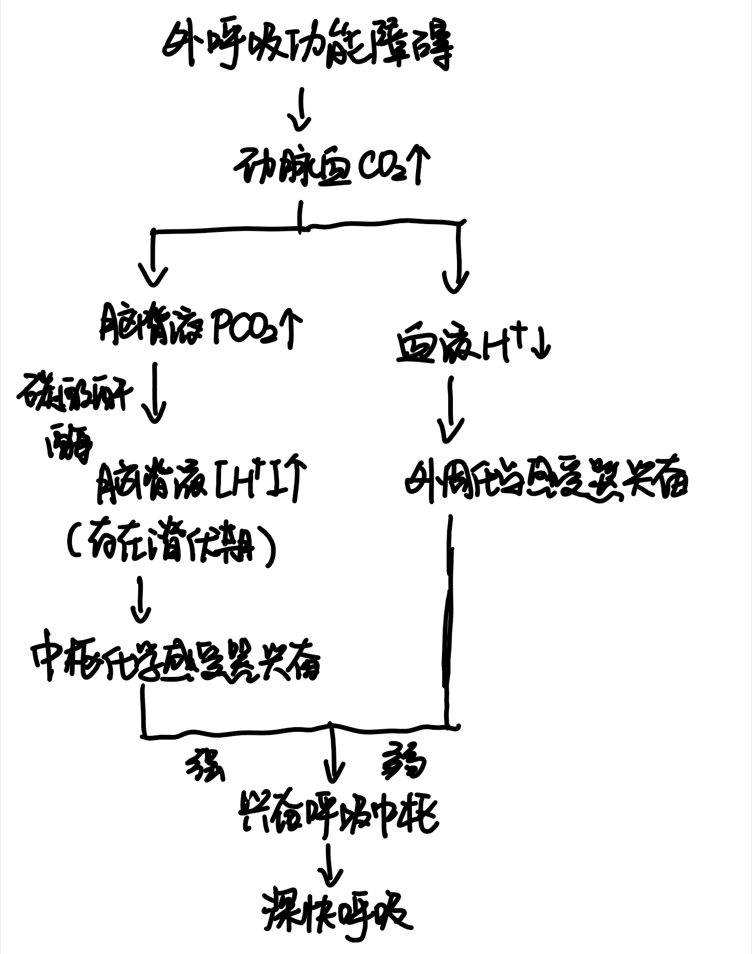 外呼吸功能障碍
动脉血CO₂↑
脑脊液PCO₂↑
血液H⁺↓
碳酸酐
酶
脑脊液[H⁺]↑
(存在潜伏期)
外周化学感受器兴奋
中枢化学感受器兴奋
强
弱
兴奋呼吸中枢
深快呼吸